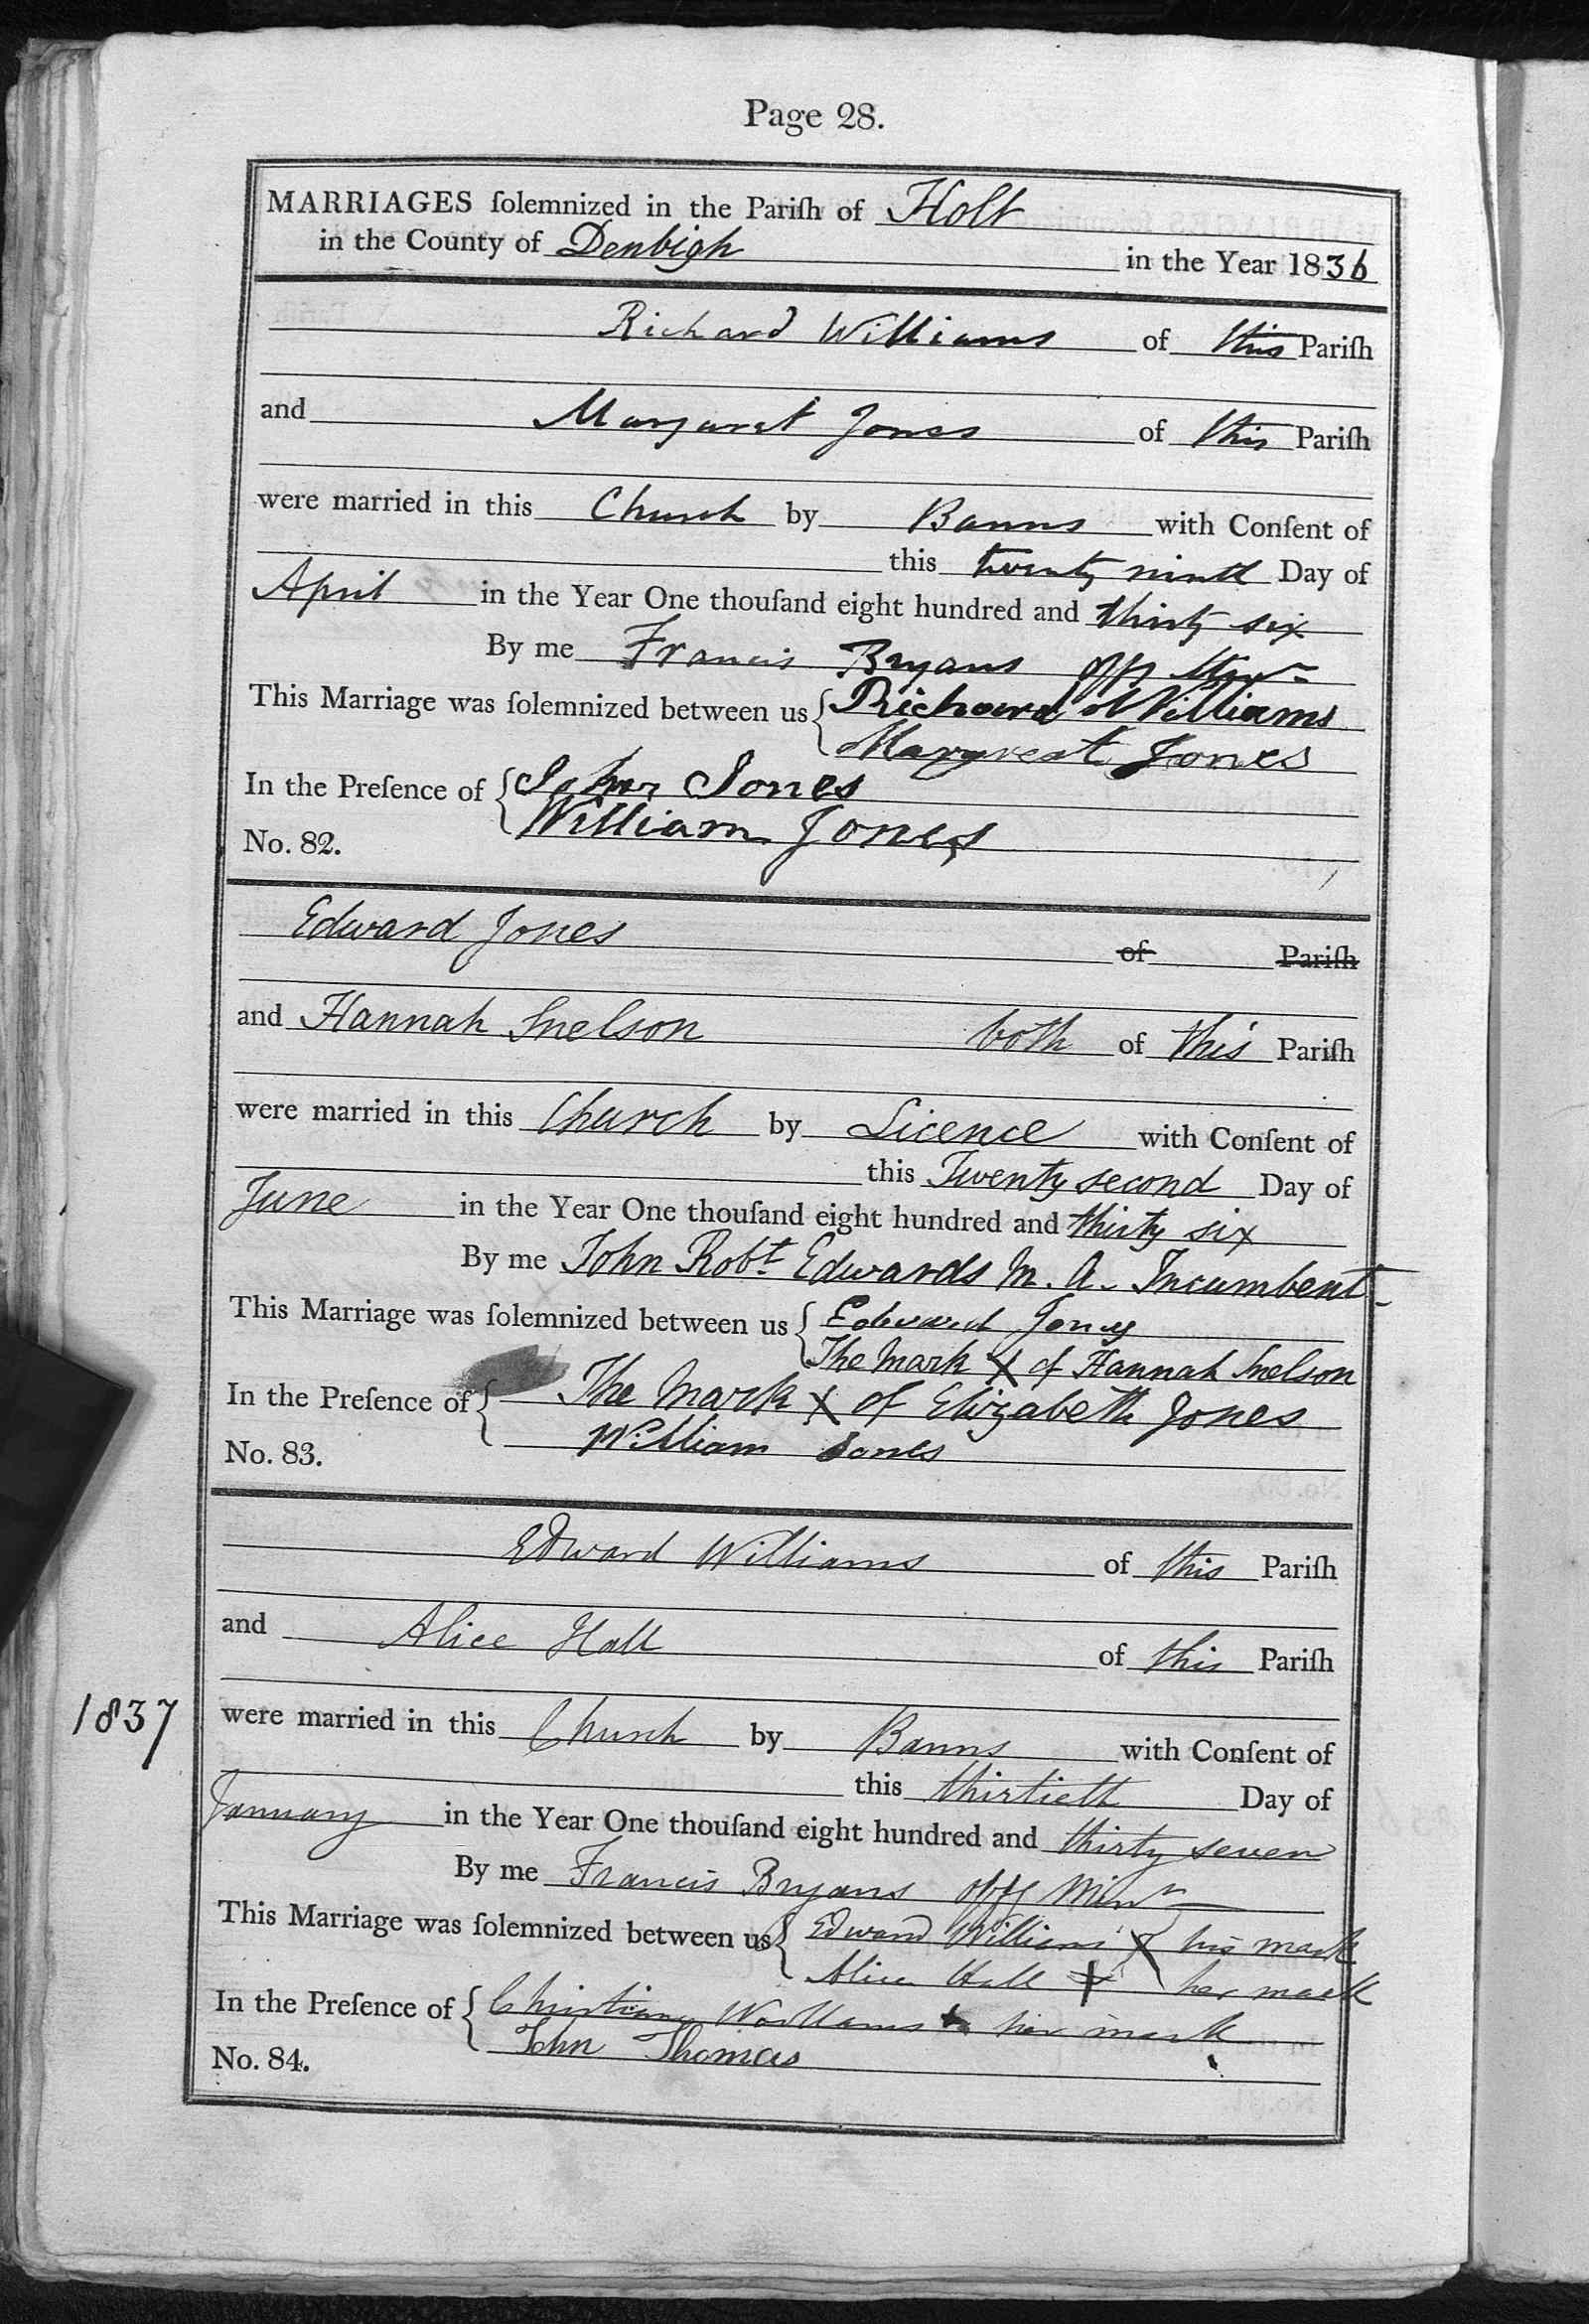 Page 28.
MARRIAGES ſolemnized in the Pariſh of Holt
in the County of Denbigh in the Year 1836
Richard Williams of this Pariſh
and Margaret Jones of this Pariſh
were married in this Church by Banns with Conſent of
this twenty ninth Day of
April in the Year One thouſand eight hundred and thirty six
By me Francis Bryans offg Minr
This Marriage was ſolemnized between us { Richard Williams
Margreat Jones
In the Preſence of { John Jones
William Jones
No. 82.
Edward Jones of Pariſh
and Hannah Snelson both of this Pariſh
were married in this Church by Licence with Conſent of
this Twenty second Day of
June in the Year One thouſand eight hundred and thirty six
By me John Robt. Edwards M. A. Incumbent
This Marriage was ſolemnized between us { Edward Jones
The Mark X of Hannah Snelson
In the Preſence of { The Mark X of Elizabeth Jones
William Jones
No. 83.
Edward Williams of this Pariſh
and Alice Hall of this Pariſh
1837
were married in this Church by Banns with Conſent of
this thirtieth Day of
January in the Year One thouſand eight hundred and thirty seven
By me Francis Bryans offg Minr
This Marriage was ſolemnized between us { Edward Williams X his mark
Alice Hall X her mark
In the Preſence of { X her mark
John Thomas
No. 84.